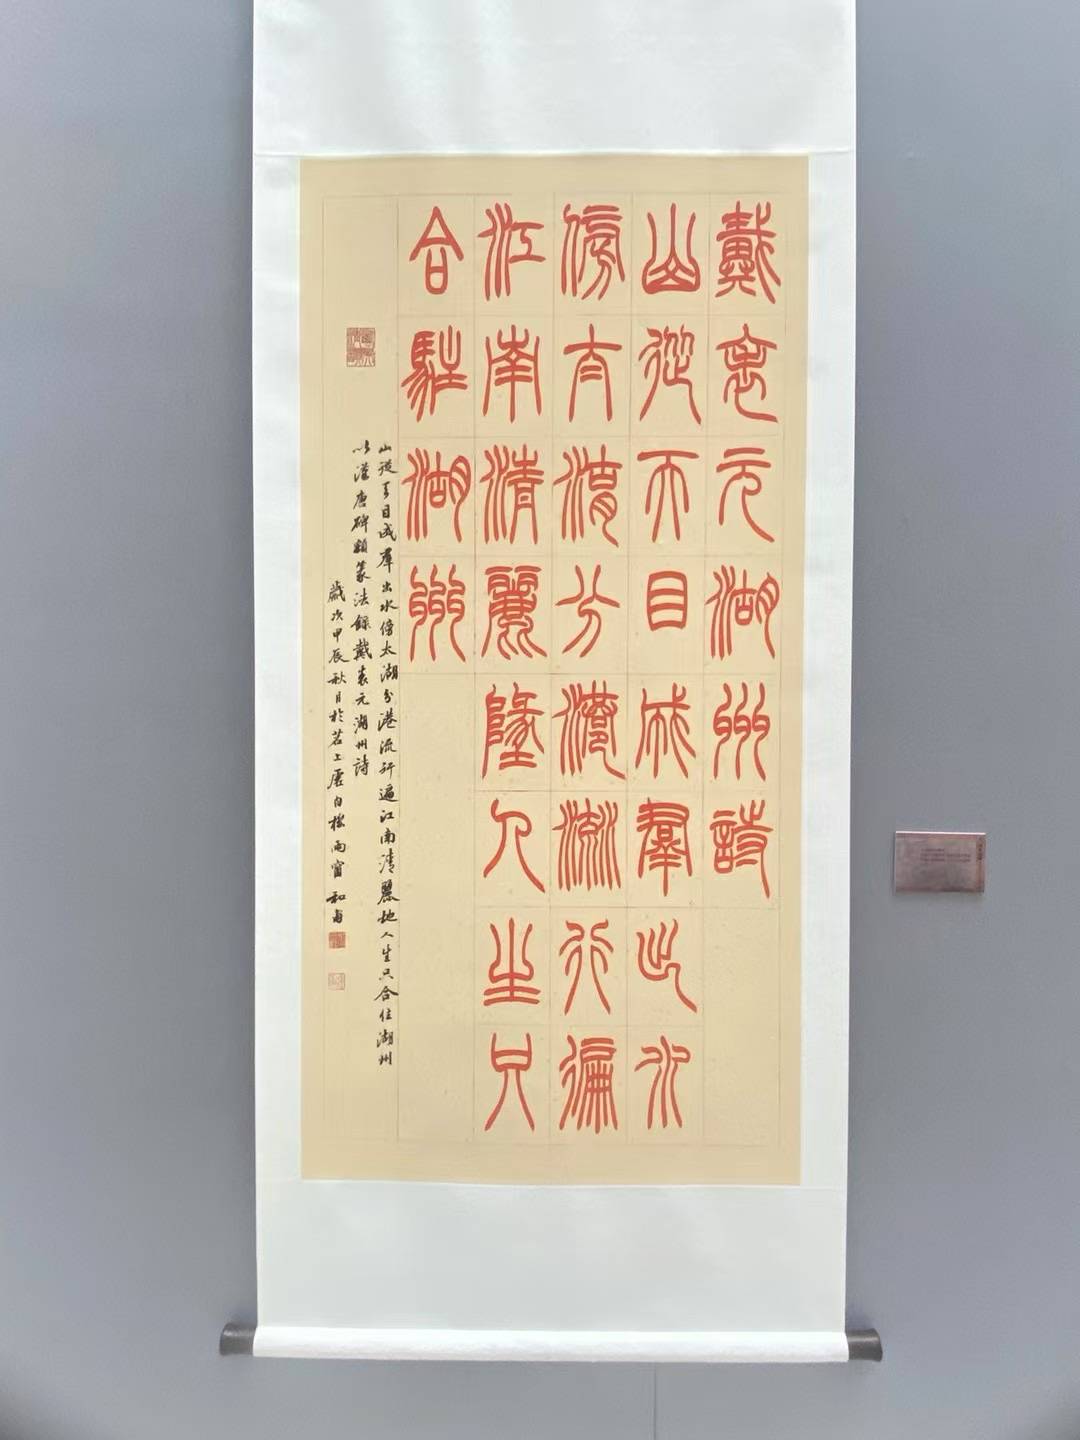 戴表元湖州詩
山從天目成羣出水
傍太湖分港流行徧
江南清麗墬人生只
合駐湖州
山從天目成羣出水傍太湖分港流行遍江南清麗地人生只合住湖州
以漢唐碑額篆法錄戴表元湖州詩
歲次甲辰秋月於苕上雨窗